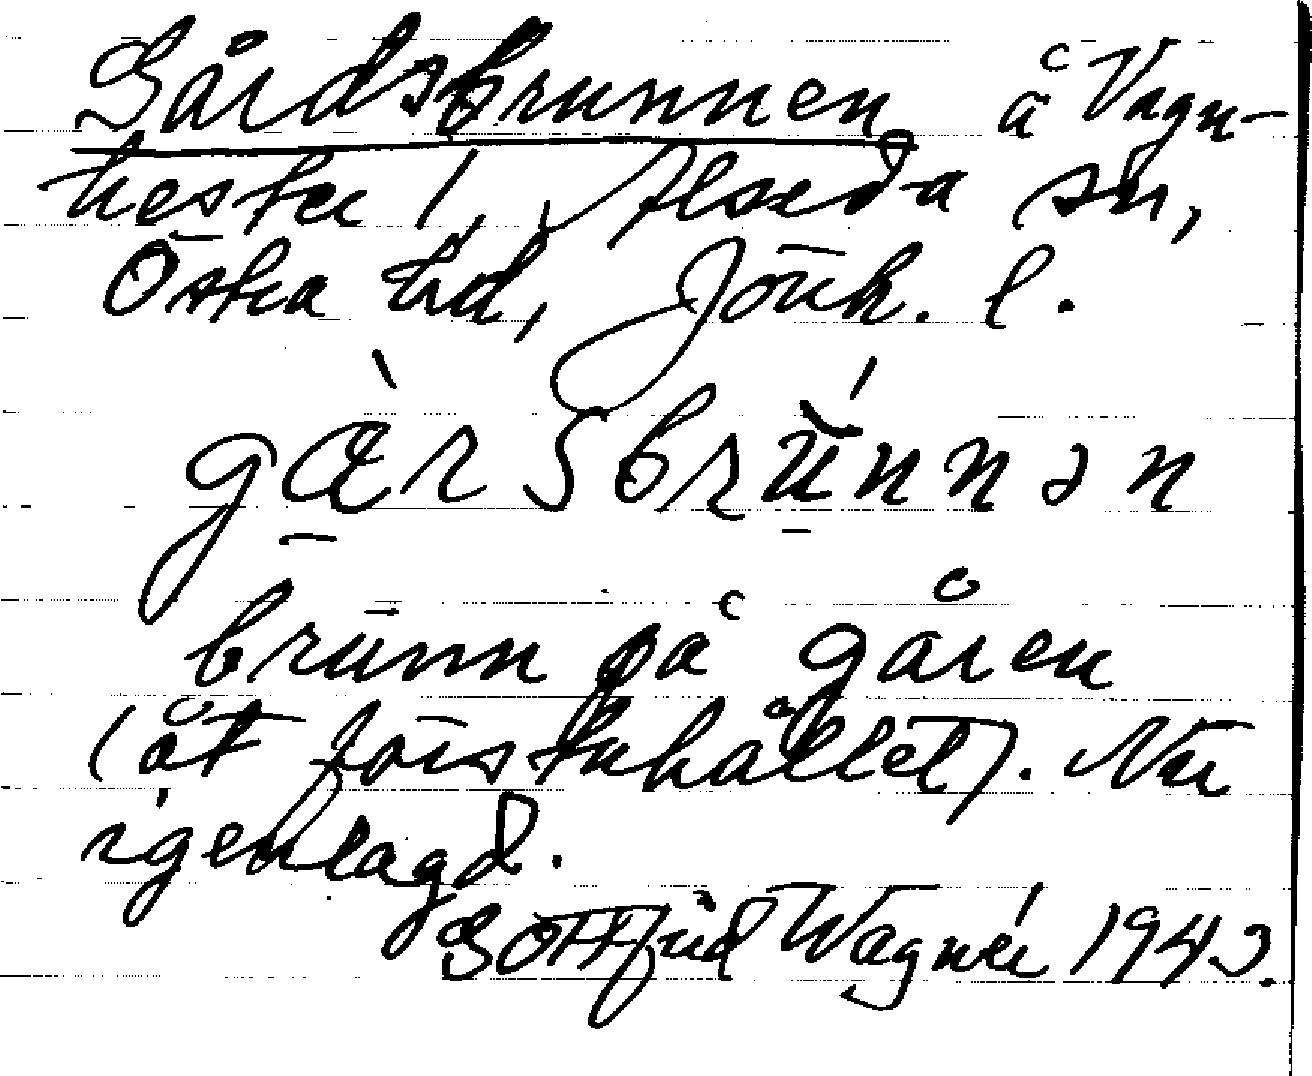 Gårdsbrunnen å Vagn-
hester 1, Alseda sn,
Östra hd, Jönk. l.
gærsbrunnən
brunn på gåren
(åt förstuhållet). Nu
igenlagd.
Gottfrid Wagnér 1943.